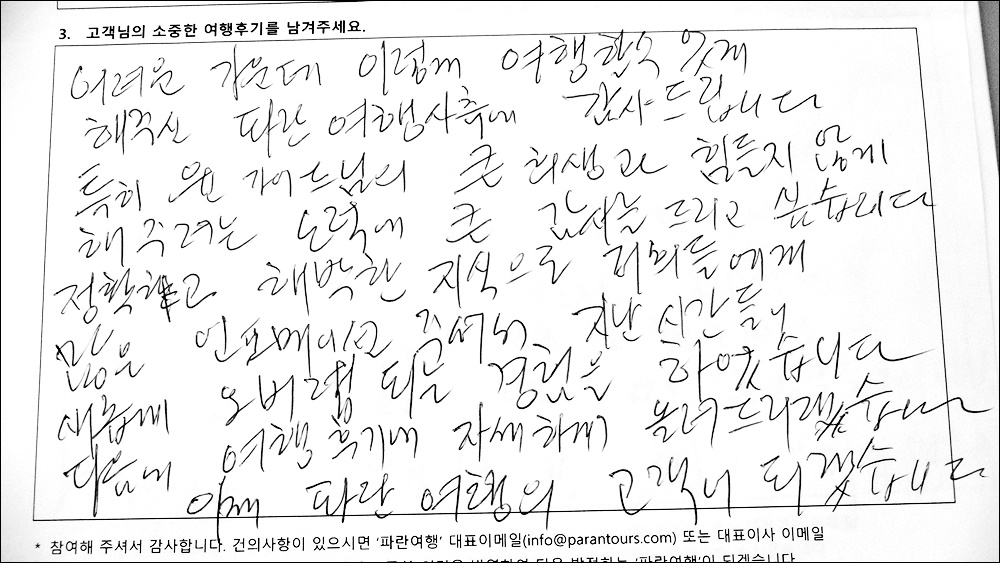 3. 고객님의 소중한 여행후기를 남겨주세요.
어려운 가운데 이렇게 여행할수 있게
해주신 파란여행사측에 감사드립니다
특히 가이드님의 큰 희생과 힘들지 않게
해주려는 노력에 큰 감사를 드리고 싶습니다
정확하고 해박한 지식으로 저희들에게
많은 인포메이션 주셔서 지난 시간들이
새롭게 오버랩 되는 경험을 하였습니다
다음에 여행후기에 자세하게 올려드리겠습니다
이제 파란여행의 고객이 되겠습니다
* 참여해 주셔서 감사합니다. 건의사항이 있으시면 '파란여행' 대표이메일(info@parantours.com) 또는 대표이사 이메일
'파란여행'이 되겠습니다